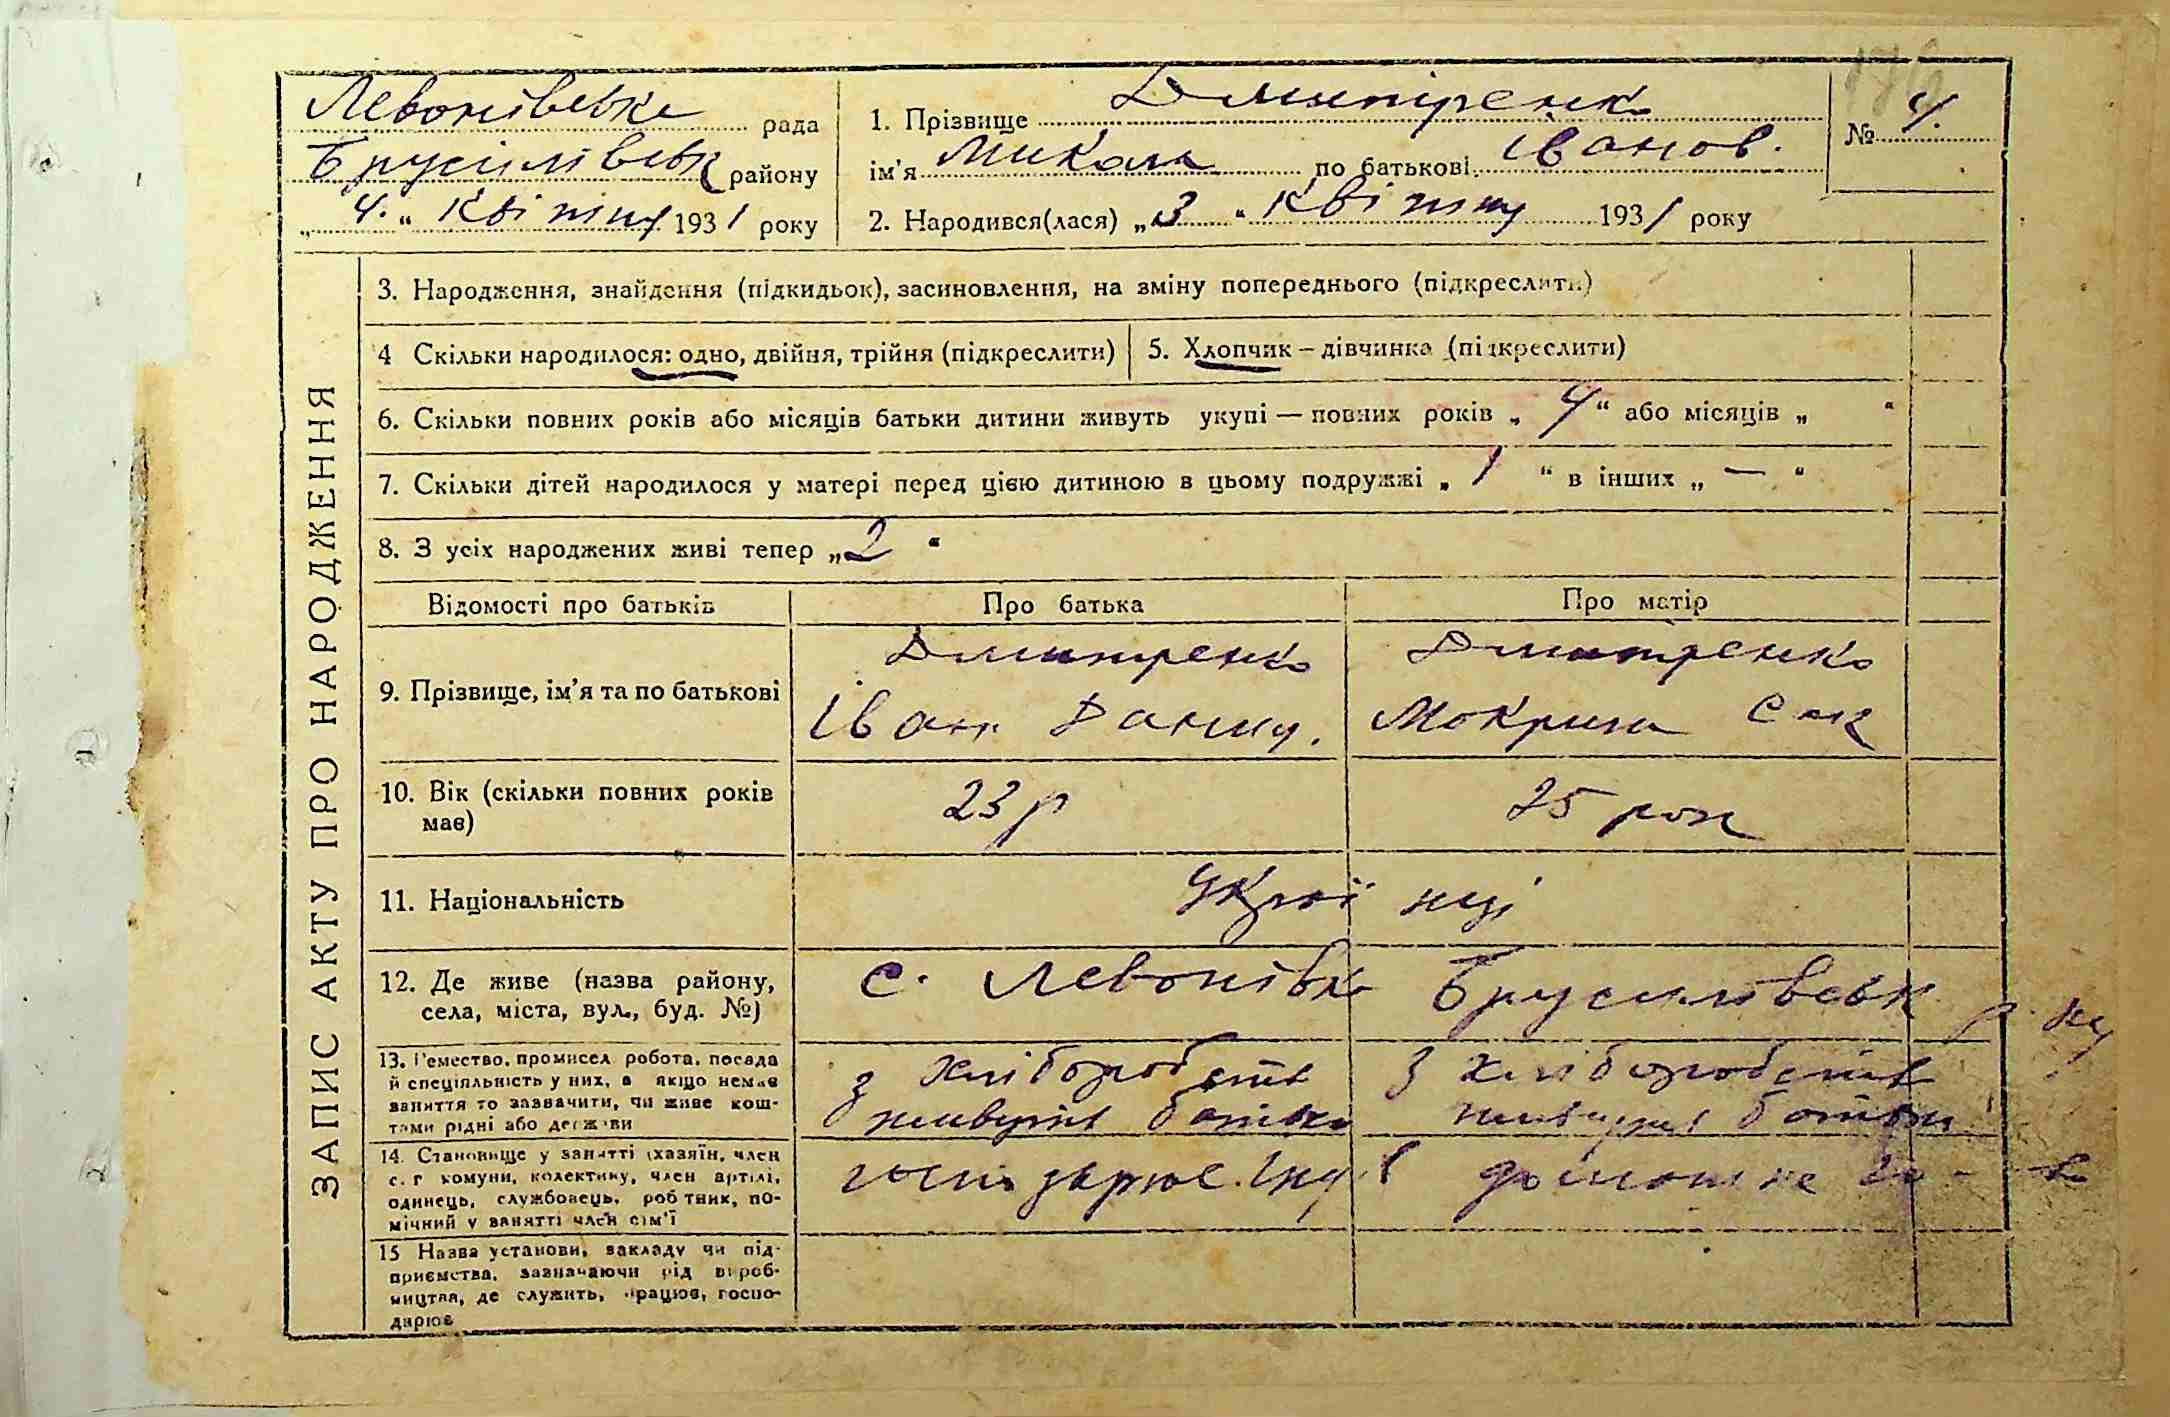 176
Левонівська рада
Брусилівськ району
„4.“ Квітня 1931 року
1. Прізвище Дмитренко
ім'я Микола по батькові Іванов.
2. Народився(лася) „3“ Квітня 1931 року
№ 4.
ЗАПИС АКТУ ПРО НАРОДЖЕННЯ
3. Народження, знайдення (підкидьок), засиновлення, на зміну попереднього (підкреслити)
4 Скільки народилося: одно, двійня, трійня (підкреслити)
5. Хлопчик – дівчинка (підкреслити)
6. Скільки повних років або місяців батьки дитини живуть укупі — повних років „4“ або місяців „ “
7. Скільки дітей народилося у матері перед цією дитиною в цьому подружжі „1“ в інших „—“
8. З усіх народжених живі тепер „2“
Відомості про батьків Про батька Про матір
9. Прізвище, ім'я та по батькові
Дмитренко
Іван
Дмитренко
Мокрина
10. Вік (скільки повних років
має)
23 р
25 рок
11. Національність
Украї нці
12. Де живе (назва району,
села, міста, вул., буд. №)
с. Левонівка Брусилівськ
р. ну
13. Ремество, промисел робота, посада
й спеціяльність у них, а якщо немає
заняття то зазначити, чи живе кош-
тами рідні або держави
з хліборобств
живуть батьки
з хліборобств
живуть батьки
14. Становище у занятті (хазяїн, член
с. г комуни, колективу, член артілі,
одинець, службовець, робтник, по-
мічний у занятті член сім'ї
15 Назва установи, закладу чи під-
приємства, зазначаючи рід вироб-
ництва, де служить, працює, госпо-
дарює